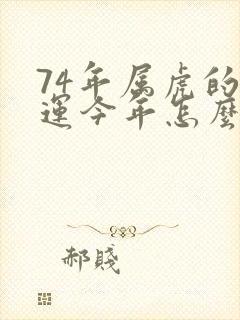 74年属虎的
運今年怎麼
郝賤